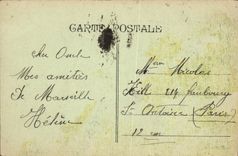 CARTE POSTALE
Mes amitiés
De Marseille
Hélène
Mme Nicolas
214 faubourg
St Antoine (Paris)
12 em